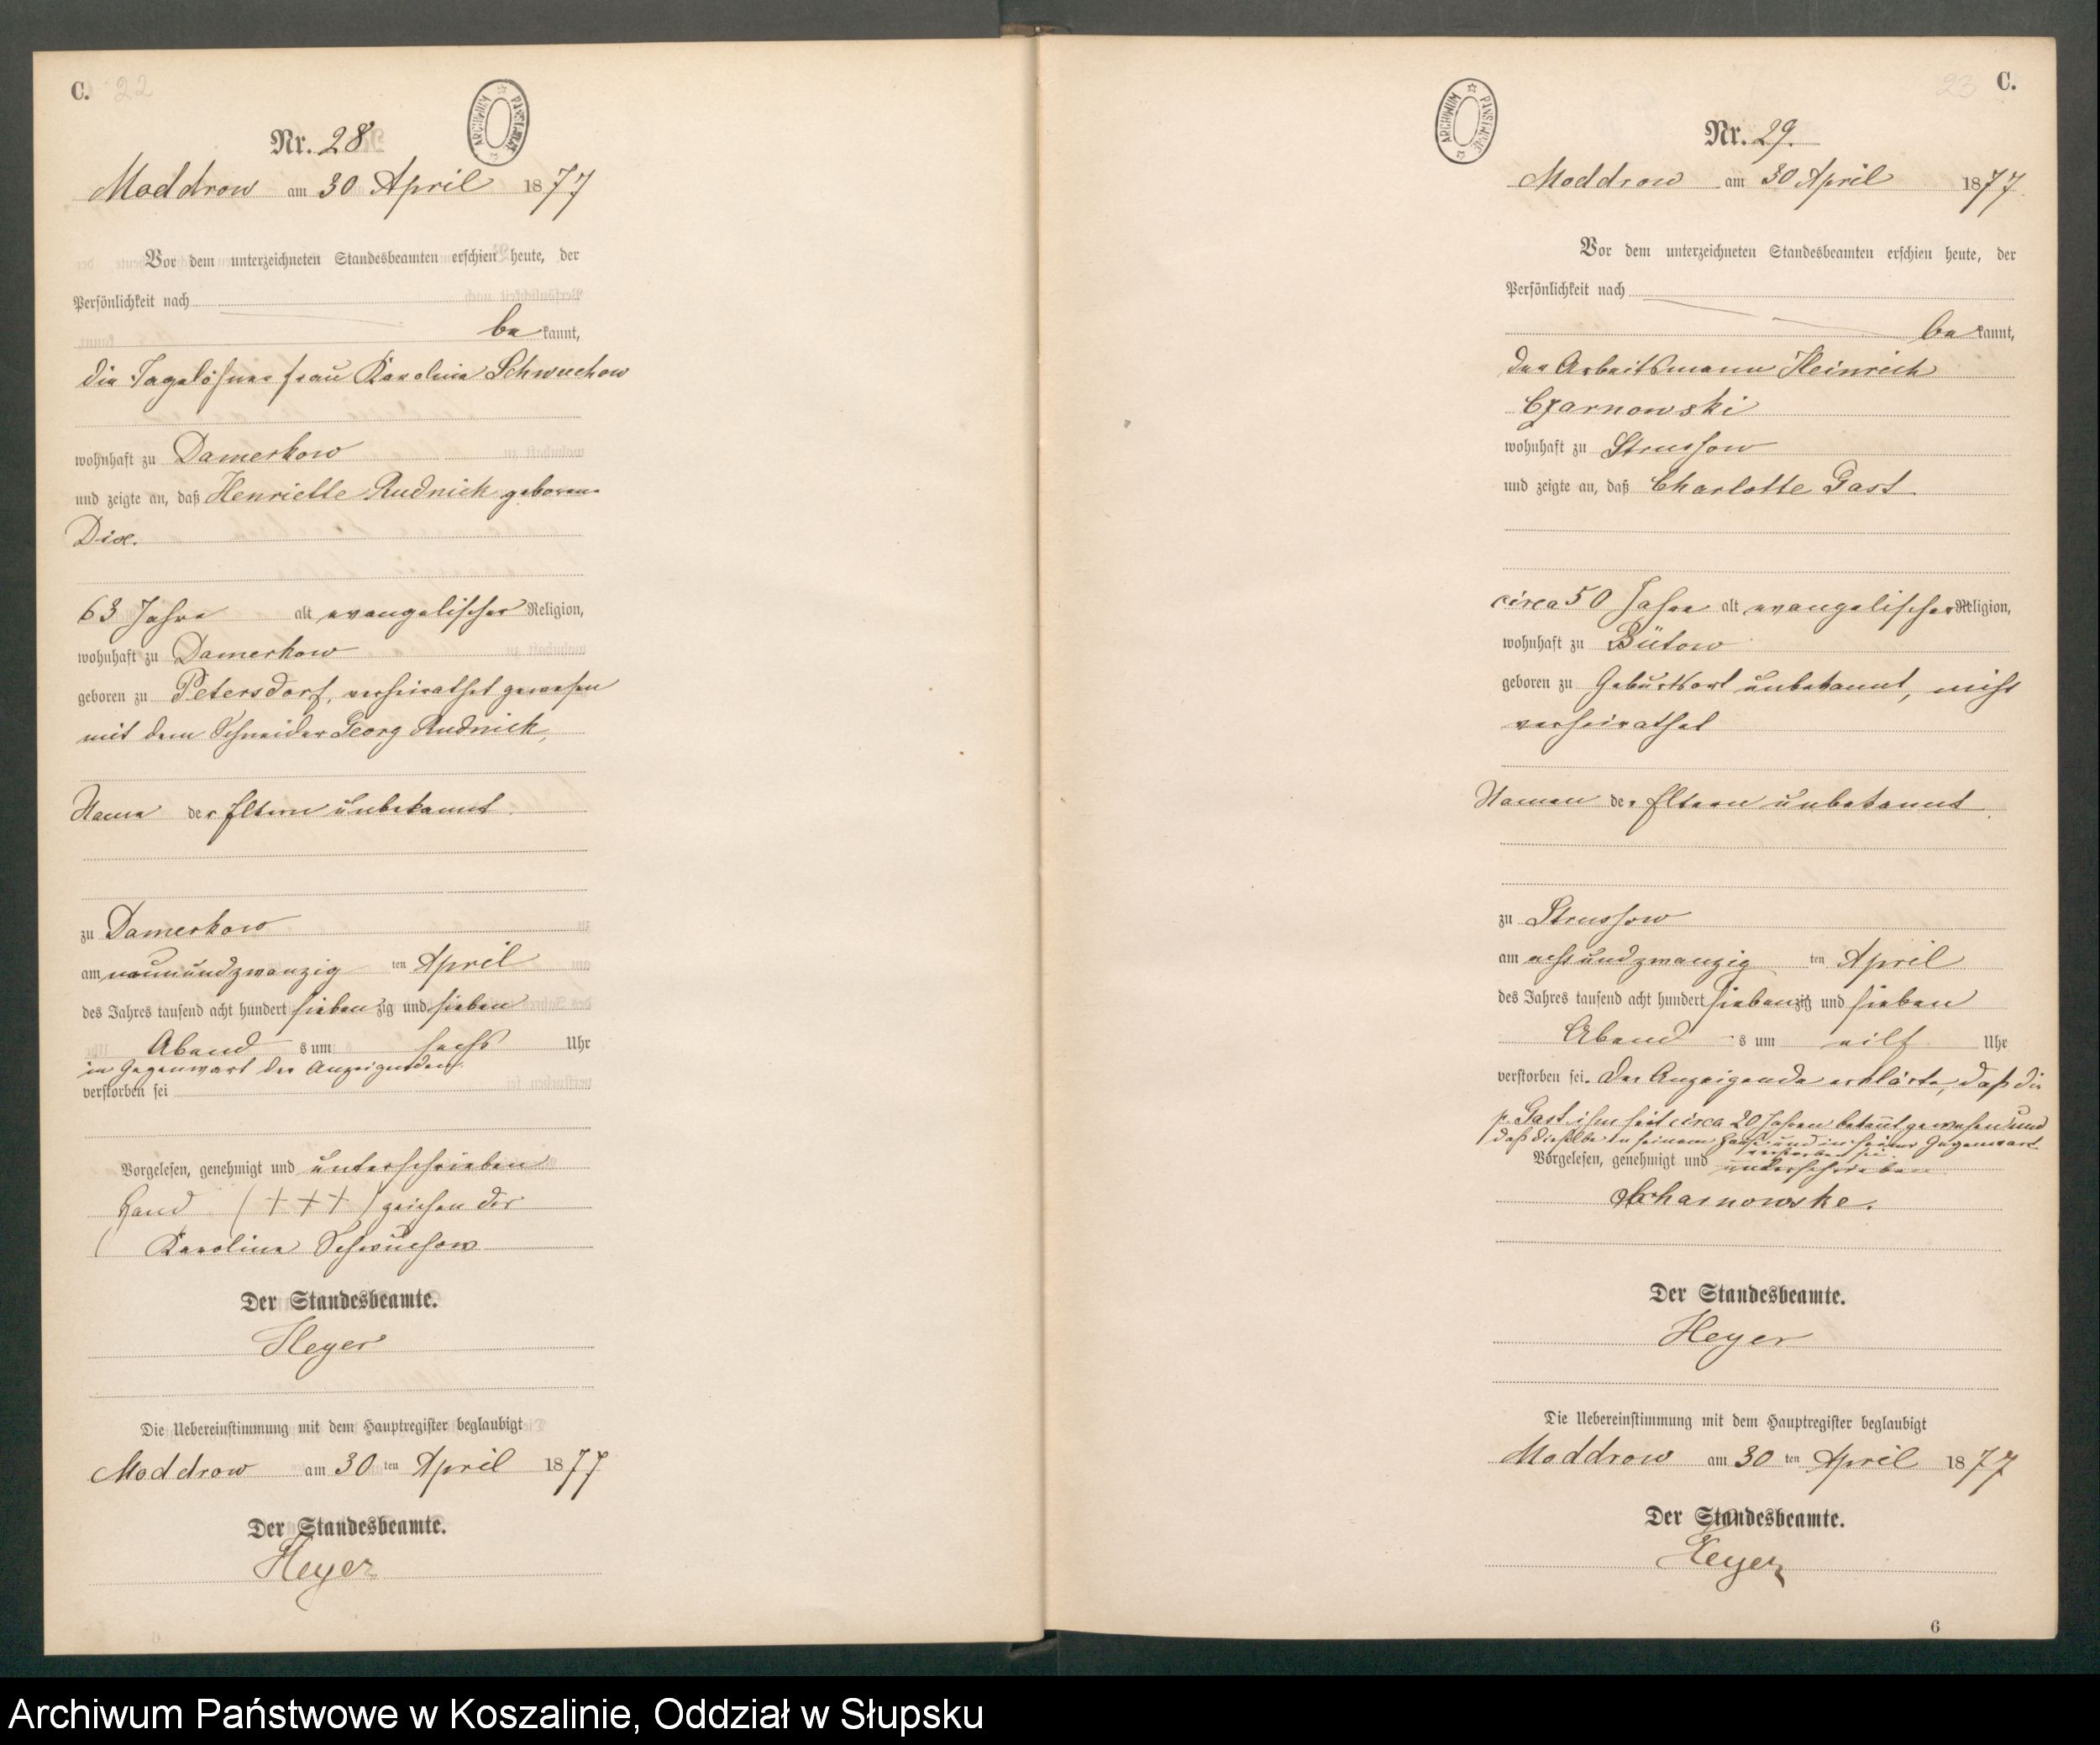 C. 22
ARCHIWUM PAŃSTWOWE
Nr. 28
Moddrow am 30 April 1877
Vor dem unterzeichneten Standesbeamten erschien heute, der
Persönlichkeit nach
be kannt,
die Tagelöhner frau Karoline Schwuchow
wohnhaft zu Damerkow
und zeigte an, daß Henriette Rudnick geborene
63 Jahre alt evangelischer Religion,
wohnhaft zu Damerkow
geboren zu Petersdorf, verheirathet gewesen
mit dem Schneider Georg Rudnick,
Name der Eltern unbekannt.
zu Damerkow
am neunundzwanzig ten April
des Jahres tausend acht hundert sieben zig und sieben
Abend s um sechs Uhr
in Gegenwart der Anzeigenden
verstorben sei
Vorgelesen, genehmigt und unterschrieben
Hand (+++) zeichen der
Karoline Schwuchow
Der Standesbeamte.
Heyer
Die Uebereinstimmung mit dem Hauptregister beglaubigt
Moddrow am 30 ten April 1877
Der Standesbeamte.
Heyer
23 C.
ARCHIWUM PAŃSTWOWE
Nr. 29.
Moddrow am 30 April 1877
Vor dem unterzeichneten Standesbeamten erschien heute, der
Persönlichkeit nach
be kannt,
der Arbeitsmann Heinrich
Czarnowski
wohnhaft zu Strussow
und zeigte an, daß Charlotte Gast
circa 50 Jahre alt evangelischer Religion,
wohnhaft zu Bütow
geboren zu Geburtsort unbekannt, nicht
verheirathet
Namen der Eltern unbekannt.
zu Strussow
am acht und zwanzig ten April
des Jahres tausend acht hundert siebenzig und sieben
Abend s um eilf Uhr
verstorben sei. Der Anzeigende erklärte, daß die
p. Gast ihm seit circa 20 Jahren bekannt gewesen und
daß dieselbe in seinem Hause und in seiner Gegenwart
verstorben sei.
Vorgelesen, genehmigt und unterschrieben
Der Standesbeamte.
Heyer
Die Uebereinstimmung mit dem Hauptregister beglaubigt
Moddrow am 30 ten April 1877
Der Standesbeamte.
Heyer
6
Archiwum Państwowe w Koszalinie, Oddział w Słupsku